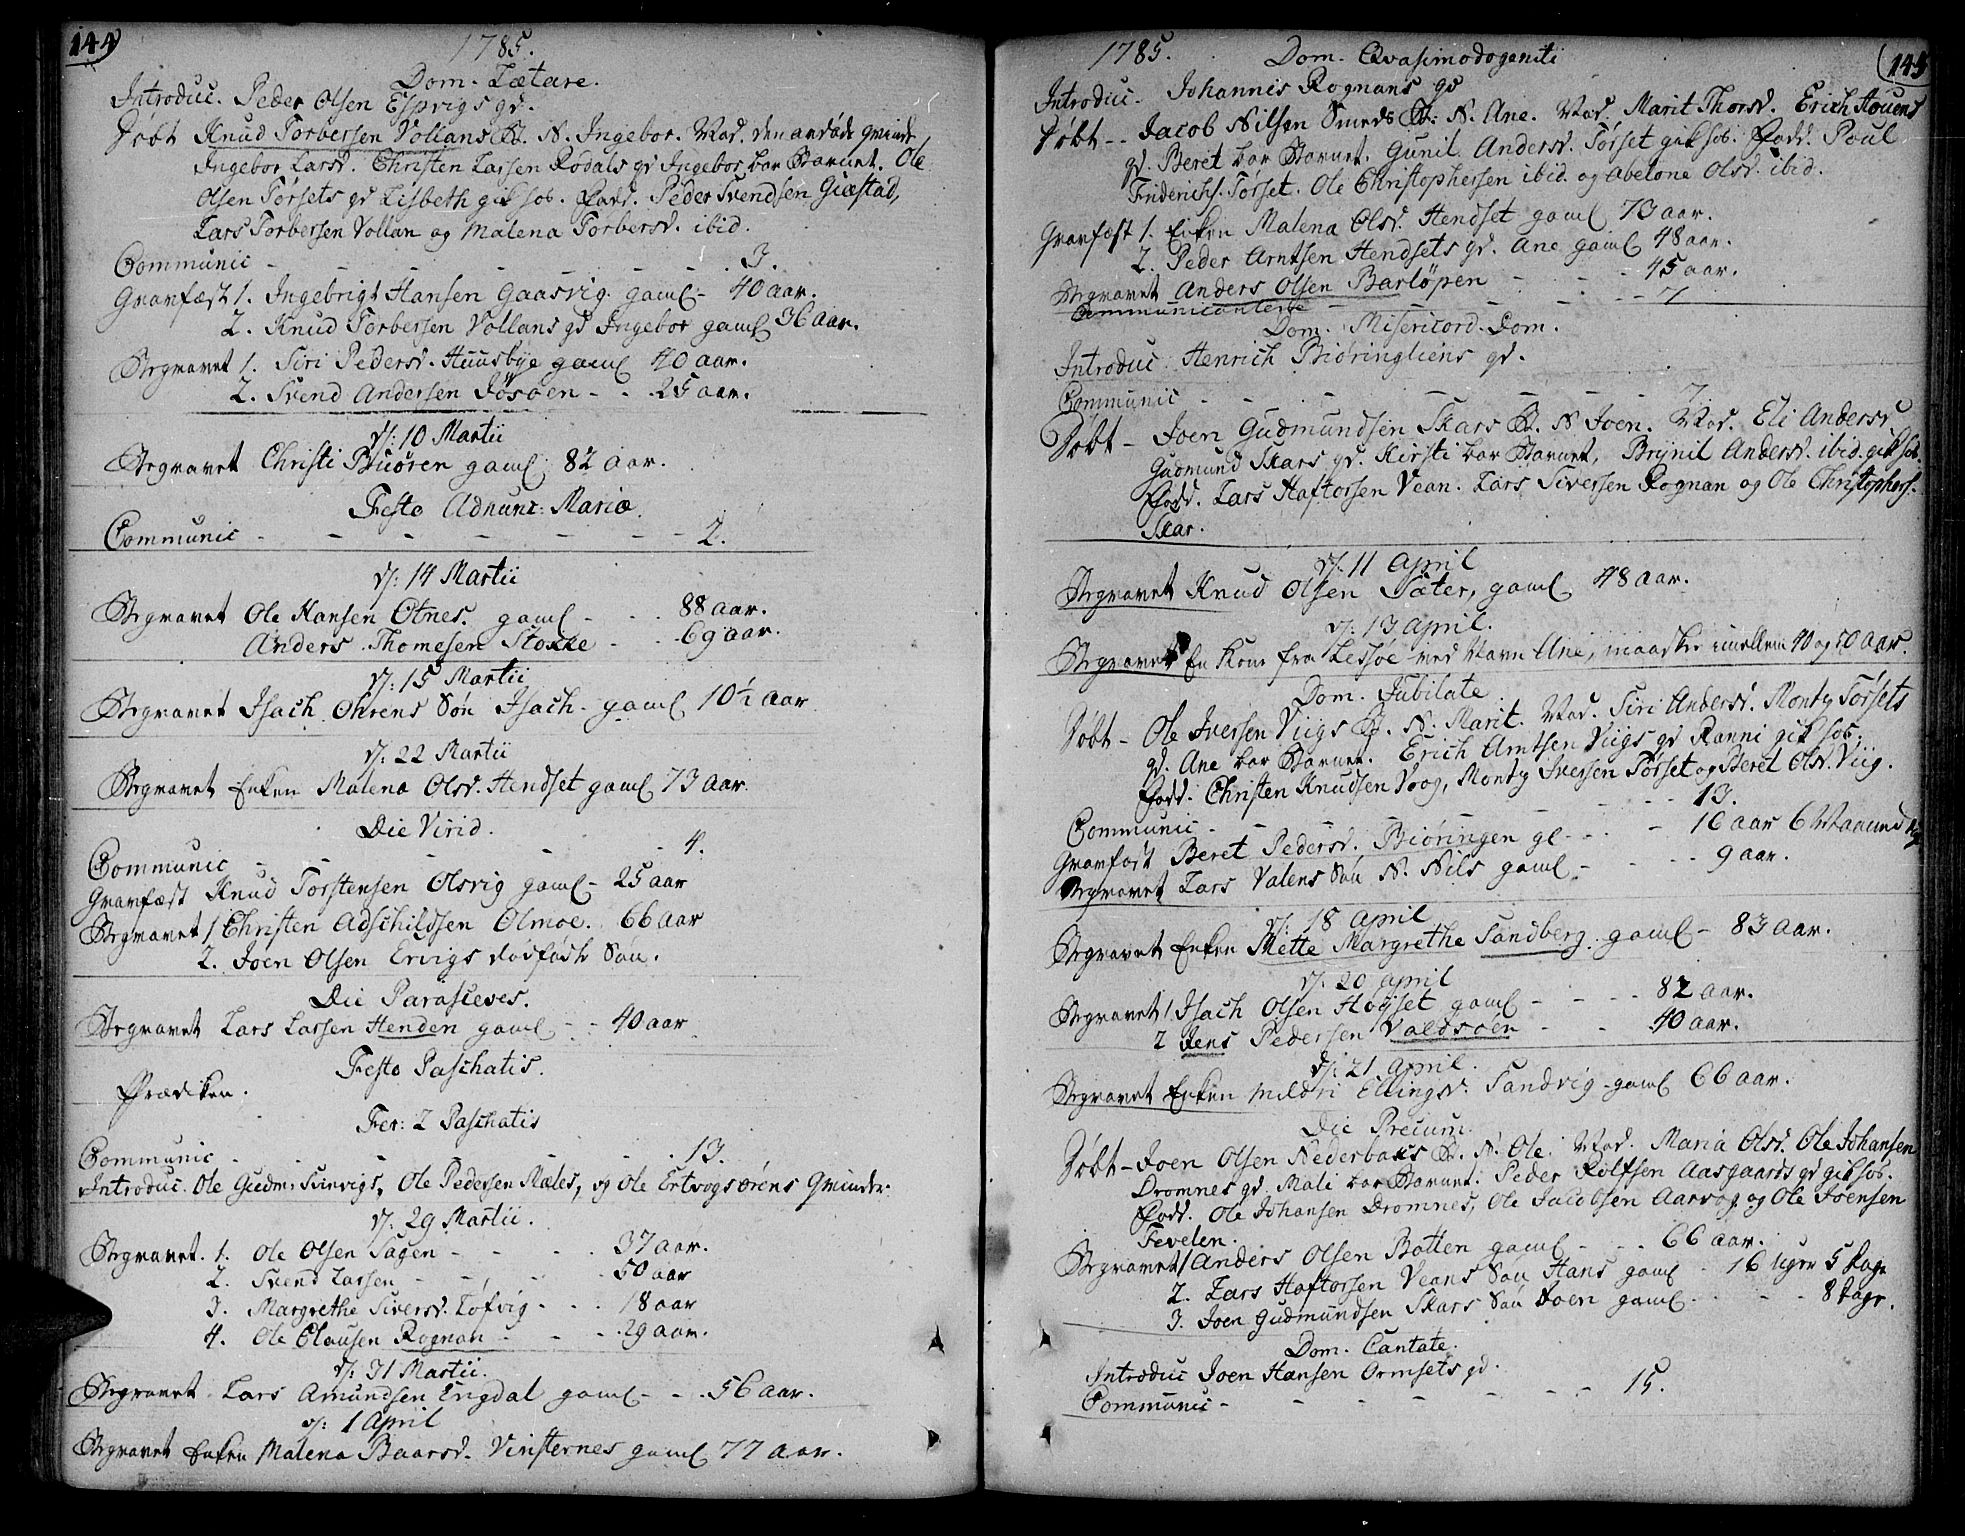 144
1785.
Dom. Lætare.
Introduc. Peder Olsen Espvigs qd.
Døbt Knud Torbersen Vollans B. N. Ingebor. Mod. den anden Qvinde
Ingebor Larsd. Christen Larsen Rodals qd Ingebor bar Barnet. Ole
Olsen Torsets qd Lisbeth gik hos. Fadd. Peder Svendsen Giæstad,
Lars Torbersen Vollan og Malena Torbersd. ibid.
Communic - - - - - - 3.
Gravfæst 1. Ingebrigt Hansen Gaasvig gaml - 40 aar.
2. Knud Torbersen Vollans qd Ingebor gaml 36 aar.
Begravet 1. Siri Pedersd. Huusbye gaml 40 aar.
2. Svend Andersen Jøsøen - - 25 aar.
d: 10 Martii
Begravet Christi Buøren gaml 82 aar.
Festo Adnunc: Mariæ
Communic - - - - - - 2.
d: 14 Martii
Begravet Ole Hansen Otnes. gaml - - - 88 aar.
Anders Thomesen Stokke - - 69 aar.
d: 15 Martii
Begravet Isach Ohrens Søn Isach - gaml 10½ aar
d: 22 Martii
Begravet Enken Malena Olsd. Hendset gaml 73 aar
Die Virid.
Communic - - - - - 4.
Gravfæst Knud Torstensen Olsvig gaml - 25 aar
Begravet 1 Christen Adschildsen Olmoe. 66 aar
2. Joen Olsen Ervigs dødfødte Søn.
Die Parasceves.
Begravet Lars Larsen Henden gaml - - 40 aar
Festo Paschatis.
Prædiken.
Fer: 2 Paschatis
Communic - - - - - - 13.
Introduc. Ole Gudm: Svinvigs, Ole Pedersen Næles, og Ole Ertvogsørens Qvinder.
d. 29 Martii.
Begravet. 1. Ole Olsen Sagen - - - - 37 aar.
2. Svend Larsen - - - - 50 aar
3. Margrethe Siversd. Tøfvig - - - 18 aar
4. Ole Olausen Rognan - - - 29 aar.
d: 31 Martii.
Begravet Lars Amundsen Engdal gaml - - 56 aar.
d: 1 April
Begravet Enken Malena Baarsd. Vinsternes gaml 77 aar.
145
1785. Dom. Qvasimodogeniti
Introduc. Johannis Rognans qd
Døbt - - Jacob Nilsen Smeds B: N. Ane. Mod. Marit Thorsd. Erich Houens
qd. Beret bar Barnet. Gunil Andersd. Tørset gik hos. Fadd. Poul
Friderichs. Tørset. Ole Christophersen ibid. og Abelone Olsd. ibid.
Gravfæst 1. Enken Malena Olsd. Hendset gaml 73 aar.
2. Peder Arntsen Hendsets qd. Ane gaml 48 aar.
Begravet Anders Olsen Barløpen - - - 45 aar.
Communicantere - - - - - - 7
Dom. Misericord. Dom.
Introduc. Henrich Biøringliens qd.
Communic - - - - - - 7.
Døbt - Joen Gudmundsen Skars B. N Joen. Mod. Eli Andersd
Gudmund Skars qd. Kirsti bar Barnet, Brynil Andersd. ibid. gik hos.
Fadd. Lars Haftorsen Vean. Lars Siversen Rognan og Ole Christophers.
Skar.
d. 11 April
Begravet Knud Olsen Sæter, gaml 48 aar.
d: 13 April.
Begravet En Kone fra Lessøe ved Navn Ane, maaskee imellem 40 og 50 aar.
Dom. Jubilate.
Døbt - Ole Iversen Viigs B. N. Marit. Mod. Siri Andersd. Monty Tørsets
qd. Ane bar Barnet. Erich Arntsen Viigs qd Ranni gik hos.
Fadd. Christen Knudsen Voog, Monty Iversen Tørset og Beret Olsd. Viig.
Communic - - - - - - 13.
Gravfæst Beret Pedersd. Biøringen gl - - - 16 aar 6 Maaneder
Begravet Lars Valens Søn N. Nils gaml - - - 9 aar.
d: 18 April
Begravet Enken Mette Margrethe Sandberg. gaml - 83 aar.
d. 20 April
Begravet 1 Isach Olsen Høgset gaml - - - 82 aar.
2 Jens Pedersen Valdsøen - - 40 aar.
d: 21 April.
Begravet Enken Mildri Ellingsd. Sandvig - gaml 66 aar.
Die Precum.
Døbt - Joen Olsen Nederbaks B. N. Ole. Mod. Maria Olsd. Ole Johansen
Dromnes qd Mali bar Barnet. Peder Rolfsen Aasgaards qd gik hos.
Fadd. Ole Johansen Dromnes, Ole Jacobsen Aarvog og Ole Joensen
Fevelen.
Begravet 1 Anders Olsen Botten gaml - - - 66 aar.
2. Lars Haftorsen Veans Søn Hans gaml - 16 uger 5 Dage
3. Joen Gudmundsen Skars Søn Joen gaml - - - 8 Dage.
Dom. Cantate.
Introduc Joen Hansen Ormsets qd.
Communic - - - - - - 15.